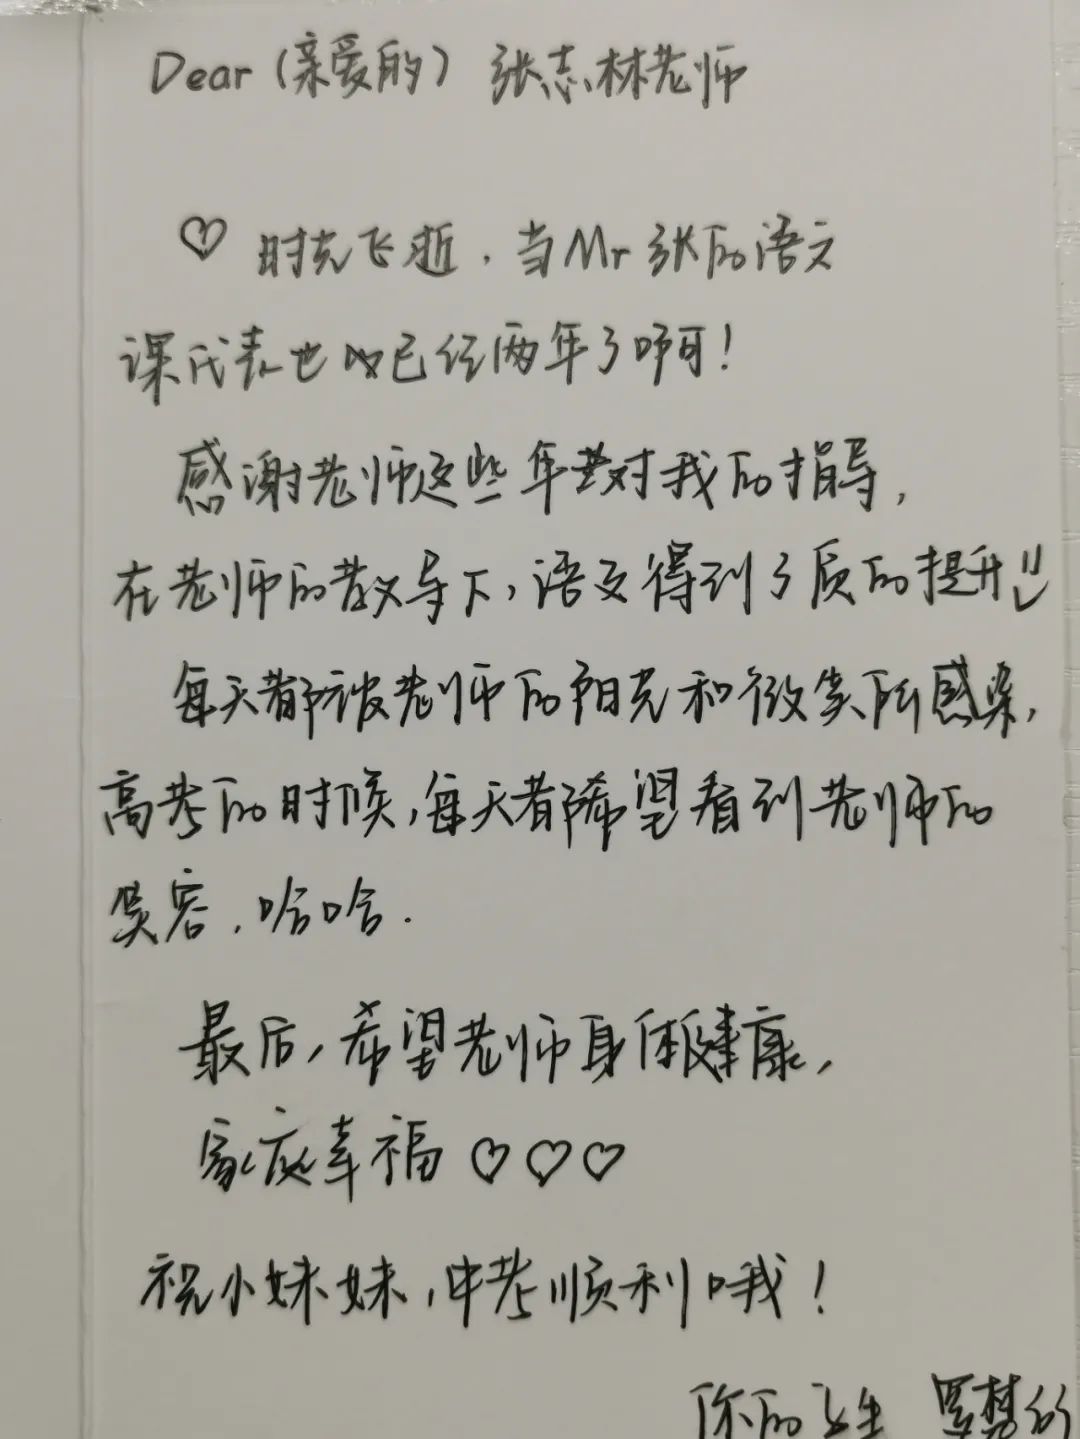 Dear（亲爱的）张志林老师
♡ 时光飞逝，当Mr 张的语文
课代表也已经两年了啊！
感谢老师这些年对我的指导，
在老师的教导下，语文得到了质的提升
每天都被老师的阳光和微笑所感染，
高考的时候，每天都希望看到老师的
笑容，哈哈.
最后，希望老师身体健康，
家庭幸福♡♡♡
祝小妹妹，中考顺利哦！
你的 罗梦